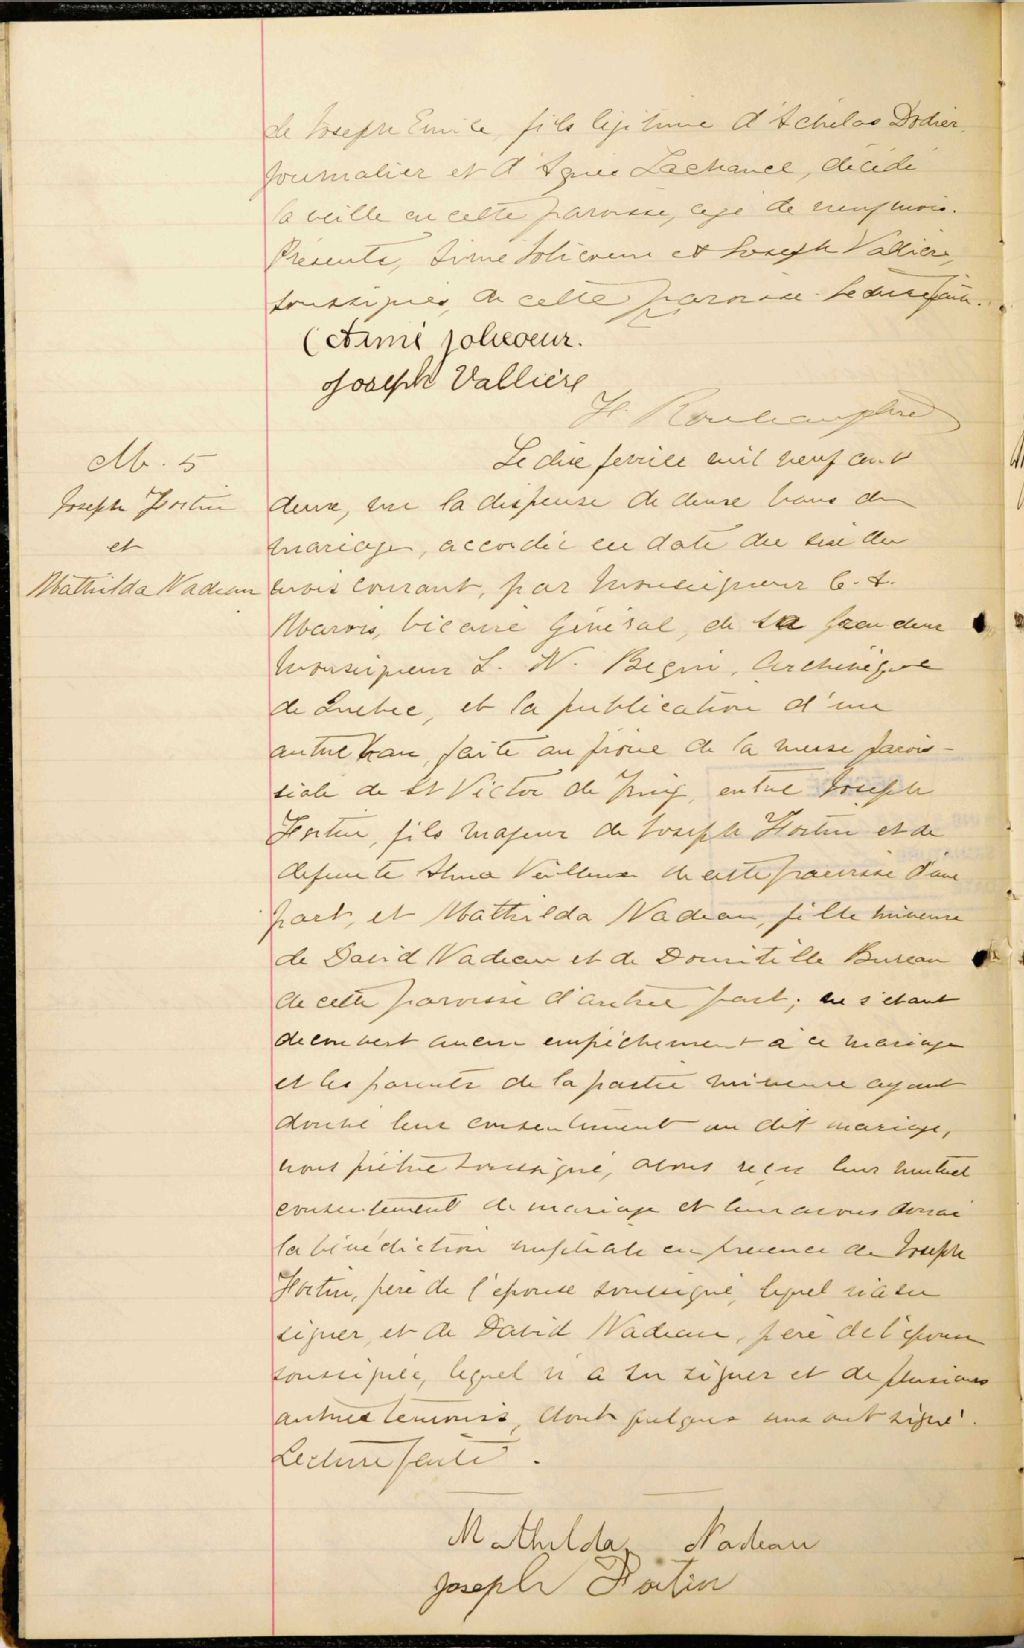 de Joseph Emile, fils légitime d'Achilas Dodier,
journalier et d'Agnès Lachance, décédé
la veille en cette paroisse, agé de neuf mois.
Présents, Aimé Jolicoeur et Joseph Vallière,
soussignés, de cette paroisse. Lecture faite.
Aimé Jolicoeur.
Joseph Vallière
H. Rouleau ptre
M. 5
Joseph Fortin
et
Mathilda Nadeau
Le dix février mil neuf cent
deux, vu la dispense de deux bans de
mariage, accordée en date du six du
mois courant, par Monseigneur C. A.
Marois, Vicaire Général, de sa grandeur
Monseigneur L. N. Begin, Archevêque
de Quebec, et la publication d'un
autre ban, faite au prône de la messe parois-
siale de St Victor de Tring, entre Joseph
Fortin, fils majeur de Joseph Fortin et de
defunte Alma Veilleux de cette paroisse d'une
part, et Mathilda Nadeau, fille mineure
de David Nadeau et de Domitille Bureau
de cette paroisse d'autre part; ne s'étant
decouvert aucun empêchement à ce mariage
et les parents de la partie mineure ayant
donné leur consentement au dit mariage,
nous prêtre soussigné, avons reçu leur mutuel
consentement de mariage et leur avons donné
la bénédiction nuptiale en presence de Joseph
Fortin, père de l'epoux soussigné, lequel n'a su
signer, et de David Nadeau, père de l'épouse
soussignée, lequel n'a su signer et de plusieurs
autres temoins, dont quelques uns ont signé.
Lecture faite.
Mathilda Nadeau
Joseph Fortin